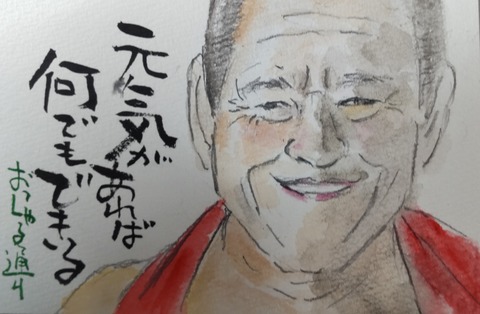 元気があれば
何でもできる
おっしゃる通り